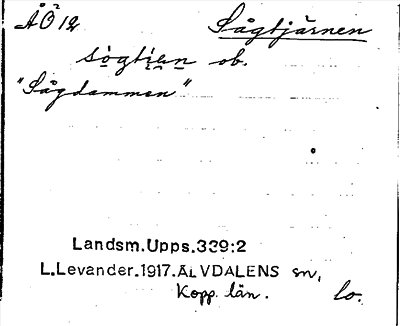 ÅÖ 12 Sågtjärnen
sǫgtįęn ob.
"Sågdammen"
Landsm.Upps.339:2
L.Levander.1917.ÄLVDALENS sn,
Kopp. län. lo.